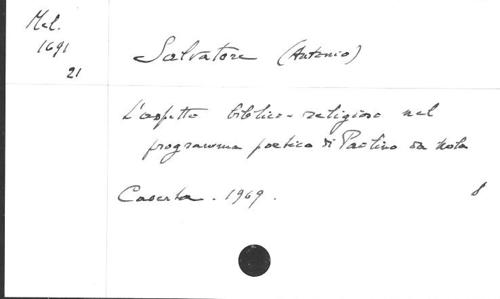 Mel.
1691
21
Salvatore (Antonio)
L'aspetto biblico-religioso nel
programma poetico di Paolino da Nola
Caserta. 1969.
8